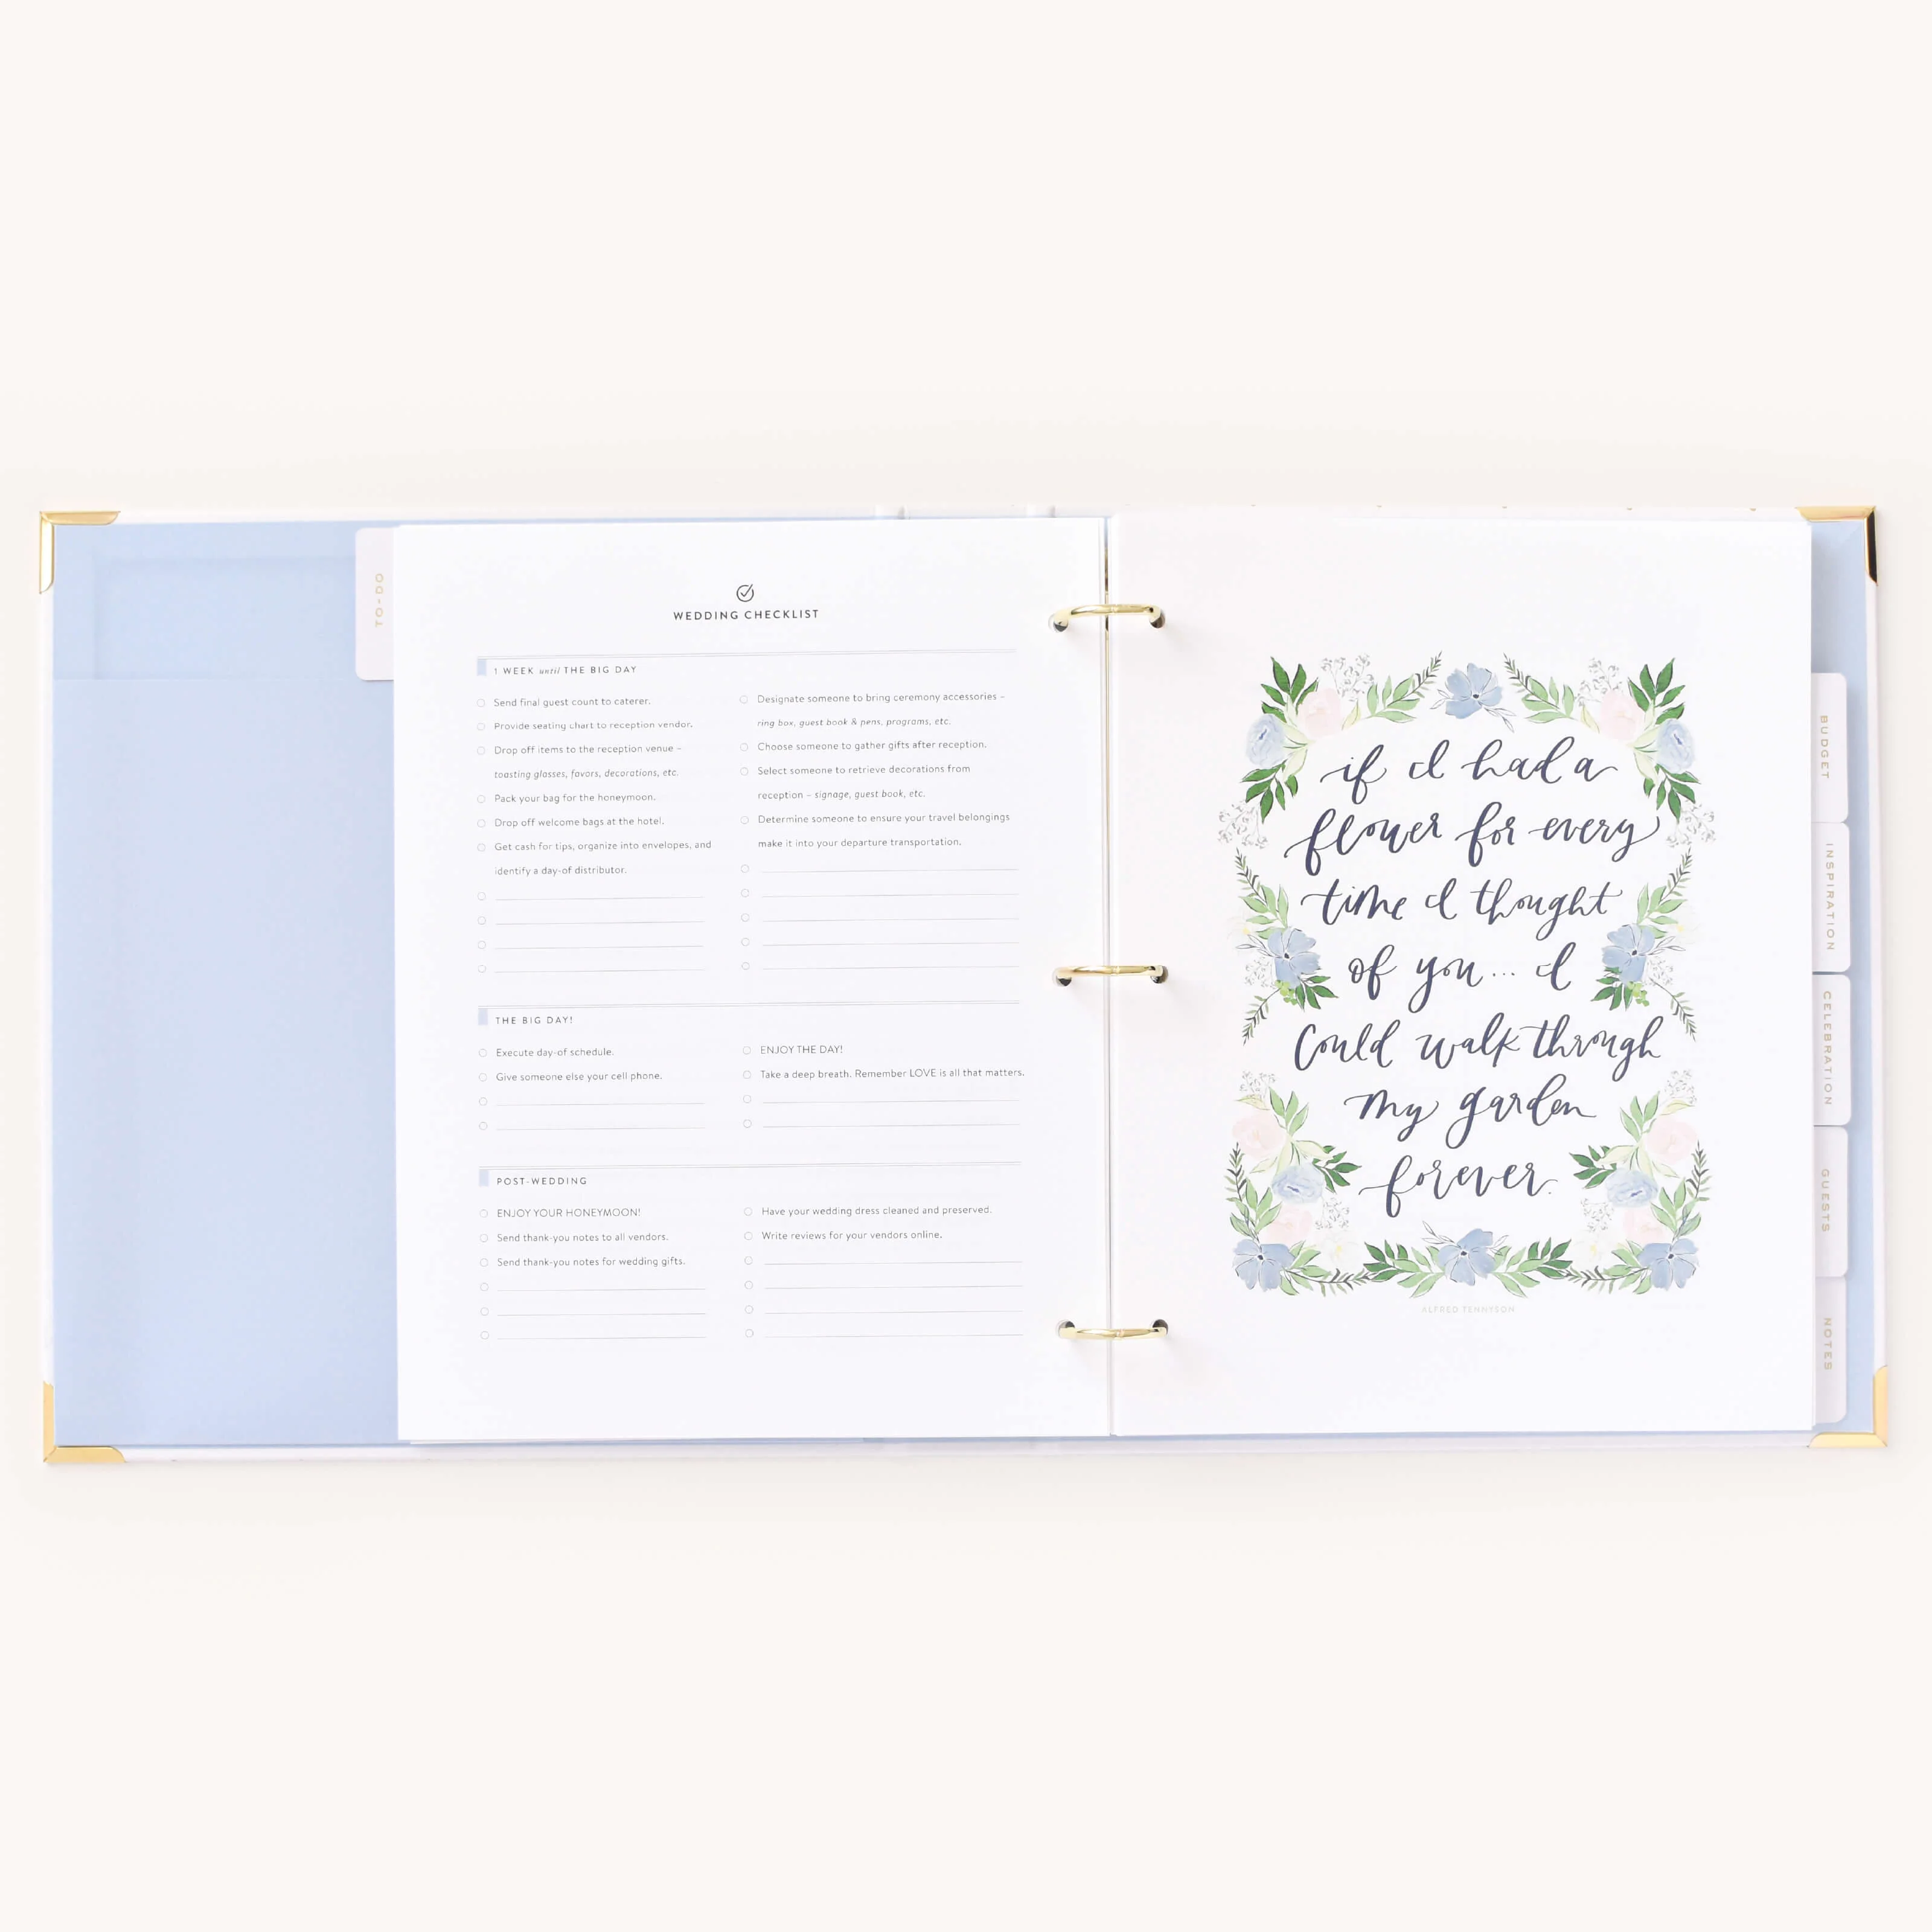 TO-DO
WEDDING CHECKLIST
1 WEEK until THE BIG DAY
Send final guest count to caterer.
Provide seating chart to reception vendor.
Drop off items to the reception venue –
toasting glasses, favors, decorations, etc.
Pack your bag for the honeymoon.
Drop off welcome bags at the hotel.
Get cash for tips, organize into envelopes, and
identify a day-of distributor.
Designate someone to bring ceremony accessories –
ring box, guest book & pens, programs, etc.
Choose someone to gather gifts after reception.
Select someone to retrieve decorations from
reception – signage, guest book, etc.
Determine someone to ensure your travel belongings
make it into your departure transportation.
THE BIG DAY!
Execute day-of schedule.
Give someone else your cell phone.
ENJOY THE DAY!
Take a deep breath. Remember LOVE is all that matters.
POST-WEDDING
ENJOY YOUR HONEYMOON!
Send thank-you notes to all vendors.
Send thank-you notes for wedding gifts.
Have your wedding dress cleaned and preserved.
Write reviews for your vendors online.
if I had a
flower for every
time I thought
of you... I
Could walk through
my garden
forever.
ALFRED TENNYSON
BUDGET
INSPIRATION
CELEBRATION
GUESTS
NOTES